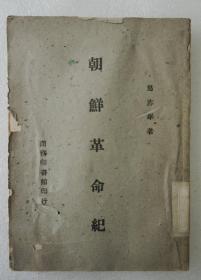 葛赤峰著
朝鮮革命紀
商務印書館印行